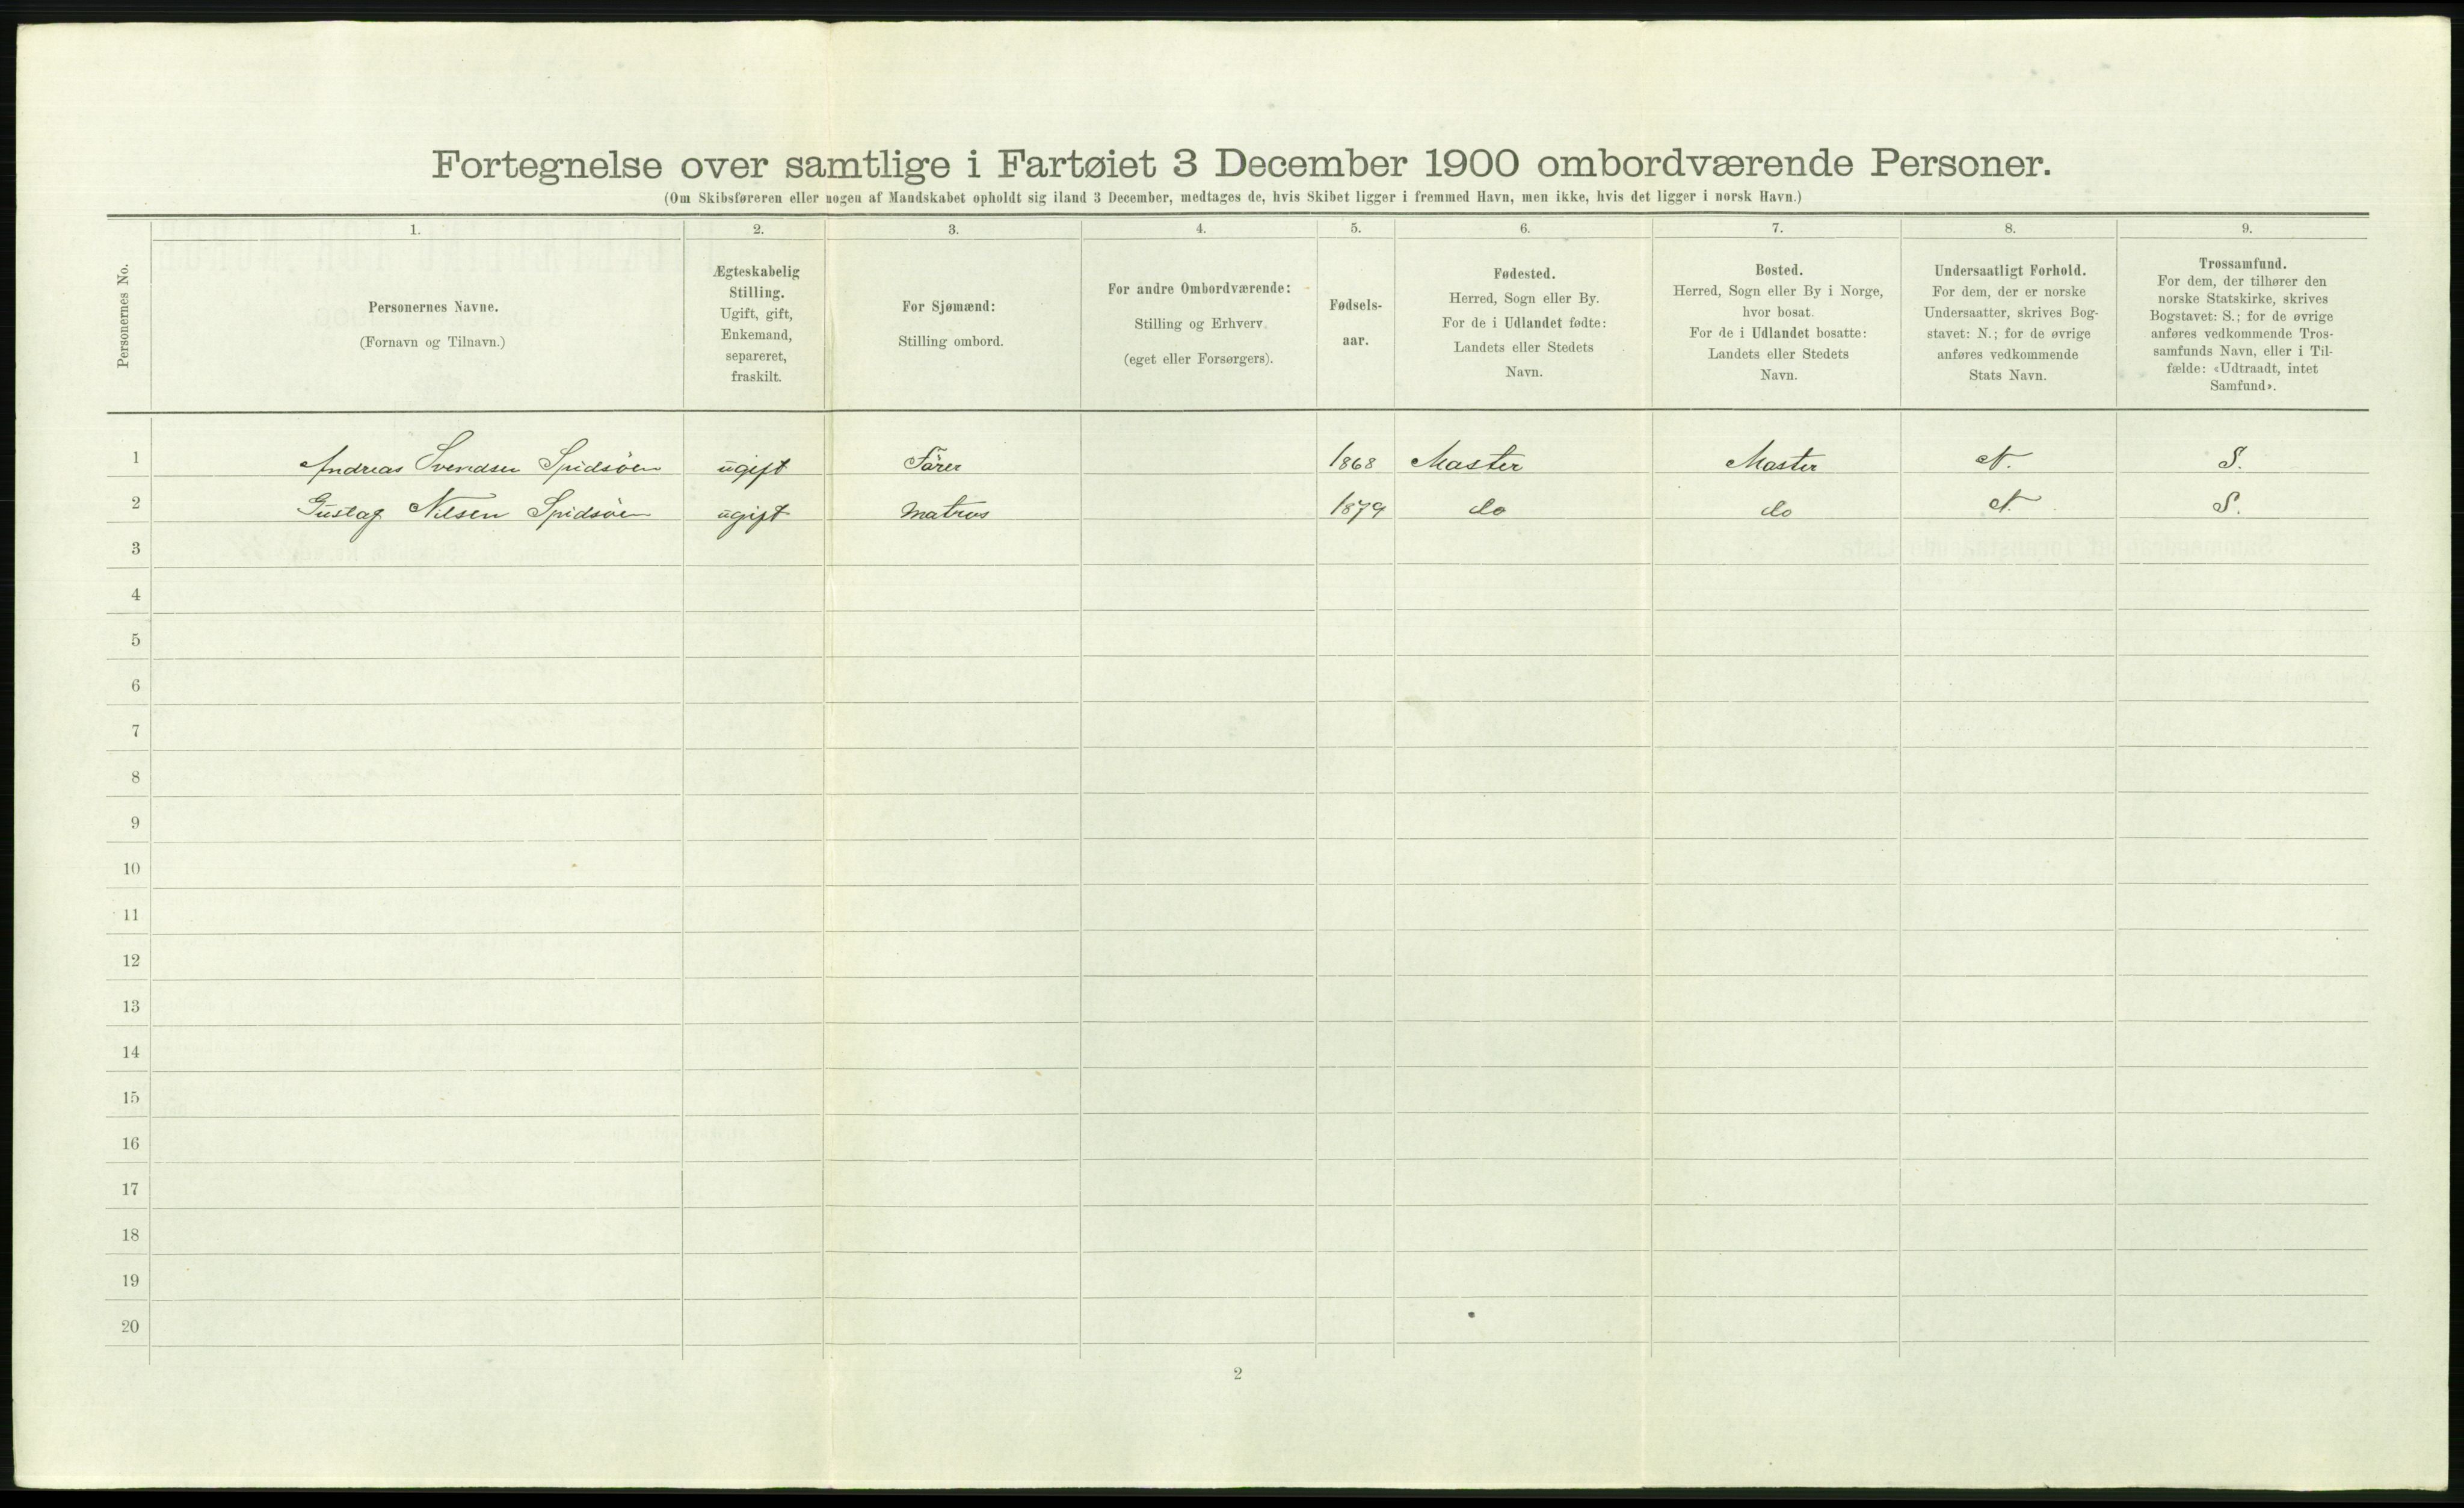 Fortegnelse over samtlige i Fartøiet 3 December 1900 ombordværende Personer.
(Om Skibsføreren eller nogen af Mandskabet opholdt sig iland 3 December, medtages de, hvis Skibet ligger i fremmed Havn, men ikke, hvis det ligger i norsk Havn.)
1. 2. 3. 4. 5. 6. 7. 8. 9.
Personernes No.
Personernes Navne.
(Fornavn og Tilnavn.)
Ægteskabelig
Stilling.
Ugift, gift,
Enkemand,
separeret,
fraskilt.
For Sjømænd:
Stilling ombord.
For andre Ombordværende:
Stilling og Erhverv
(eget eller Forsørgers).
Fødsels-
aar.
Fødested.
Herred, Sogn eller By.
For de i Udlandet fødte:
Landets eller Stedets
Navn.
Bosted.
Herred, Sogn eller By i Norge,
hvor bosat.
For de i Udlandet bosatte:
Landets eller Stedets
Navn.
Undersaatligt Forhold.
For dem, der er norske
Undersaatter, skrives Bog-
stavet: N.; for de øvrige
anføres vedkommende
Stats Navn.
Trossamfund.
For dem, der tilhører den
norske Statskirke, skrives
Bogstavet: S.; for de øvrige
anføres vedkommende Tros-
samfunds Navn, eller i Til-
fælde: «Udtraadt, intet
Samfund».
1 Andreas Svendsen Spidsöen ugift Förer 1868 Moster Moster N. S.
2 Gustag Nilsen Spidsöen ugift Matros 1879 do do N. S.
3
4
5
6
7
8
9
10
11
12
13
14
15
16
17
18
19
20
2